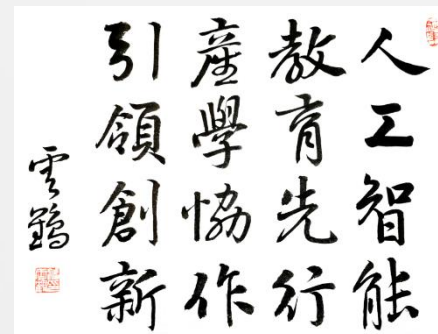 人工智能
教育先行
產學協作
引領創新